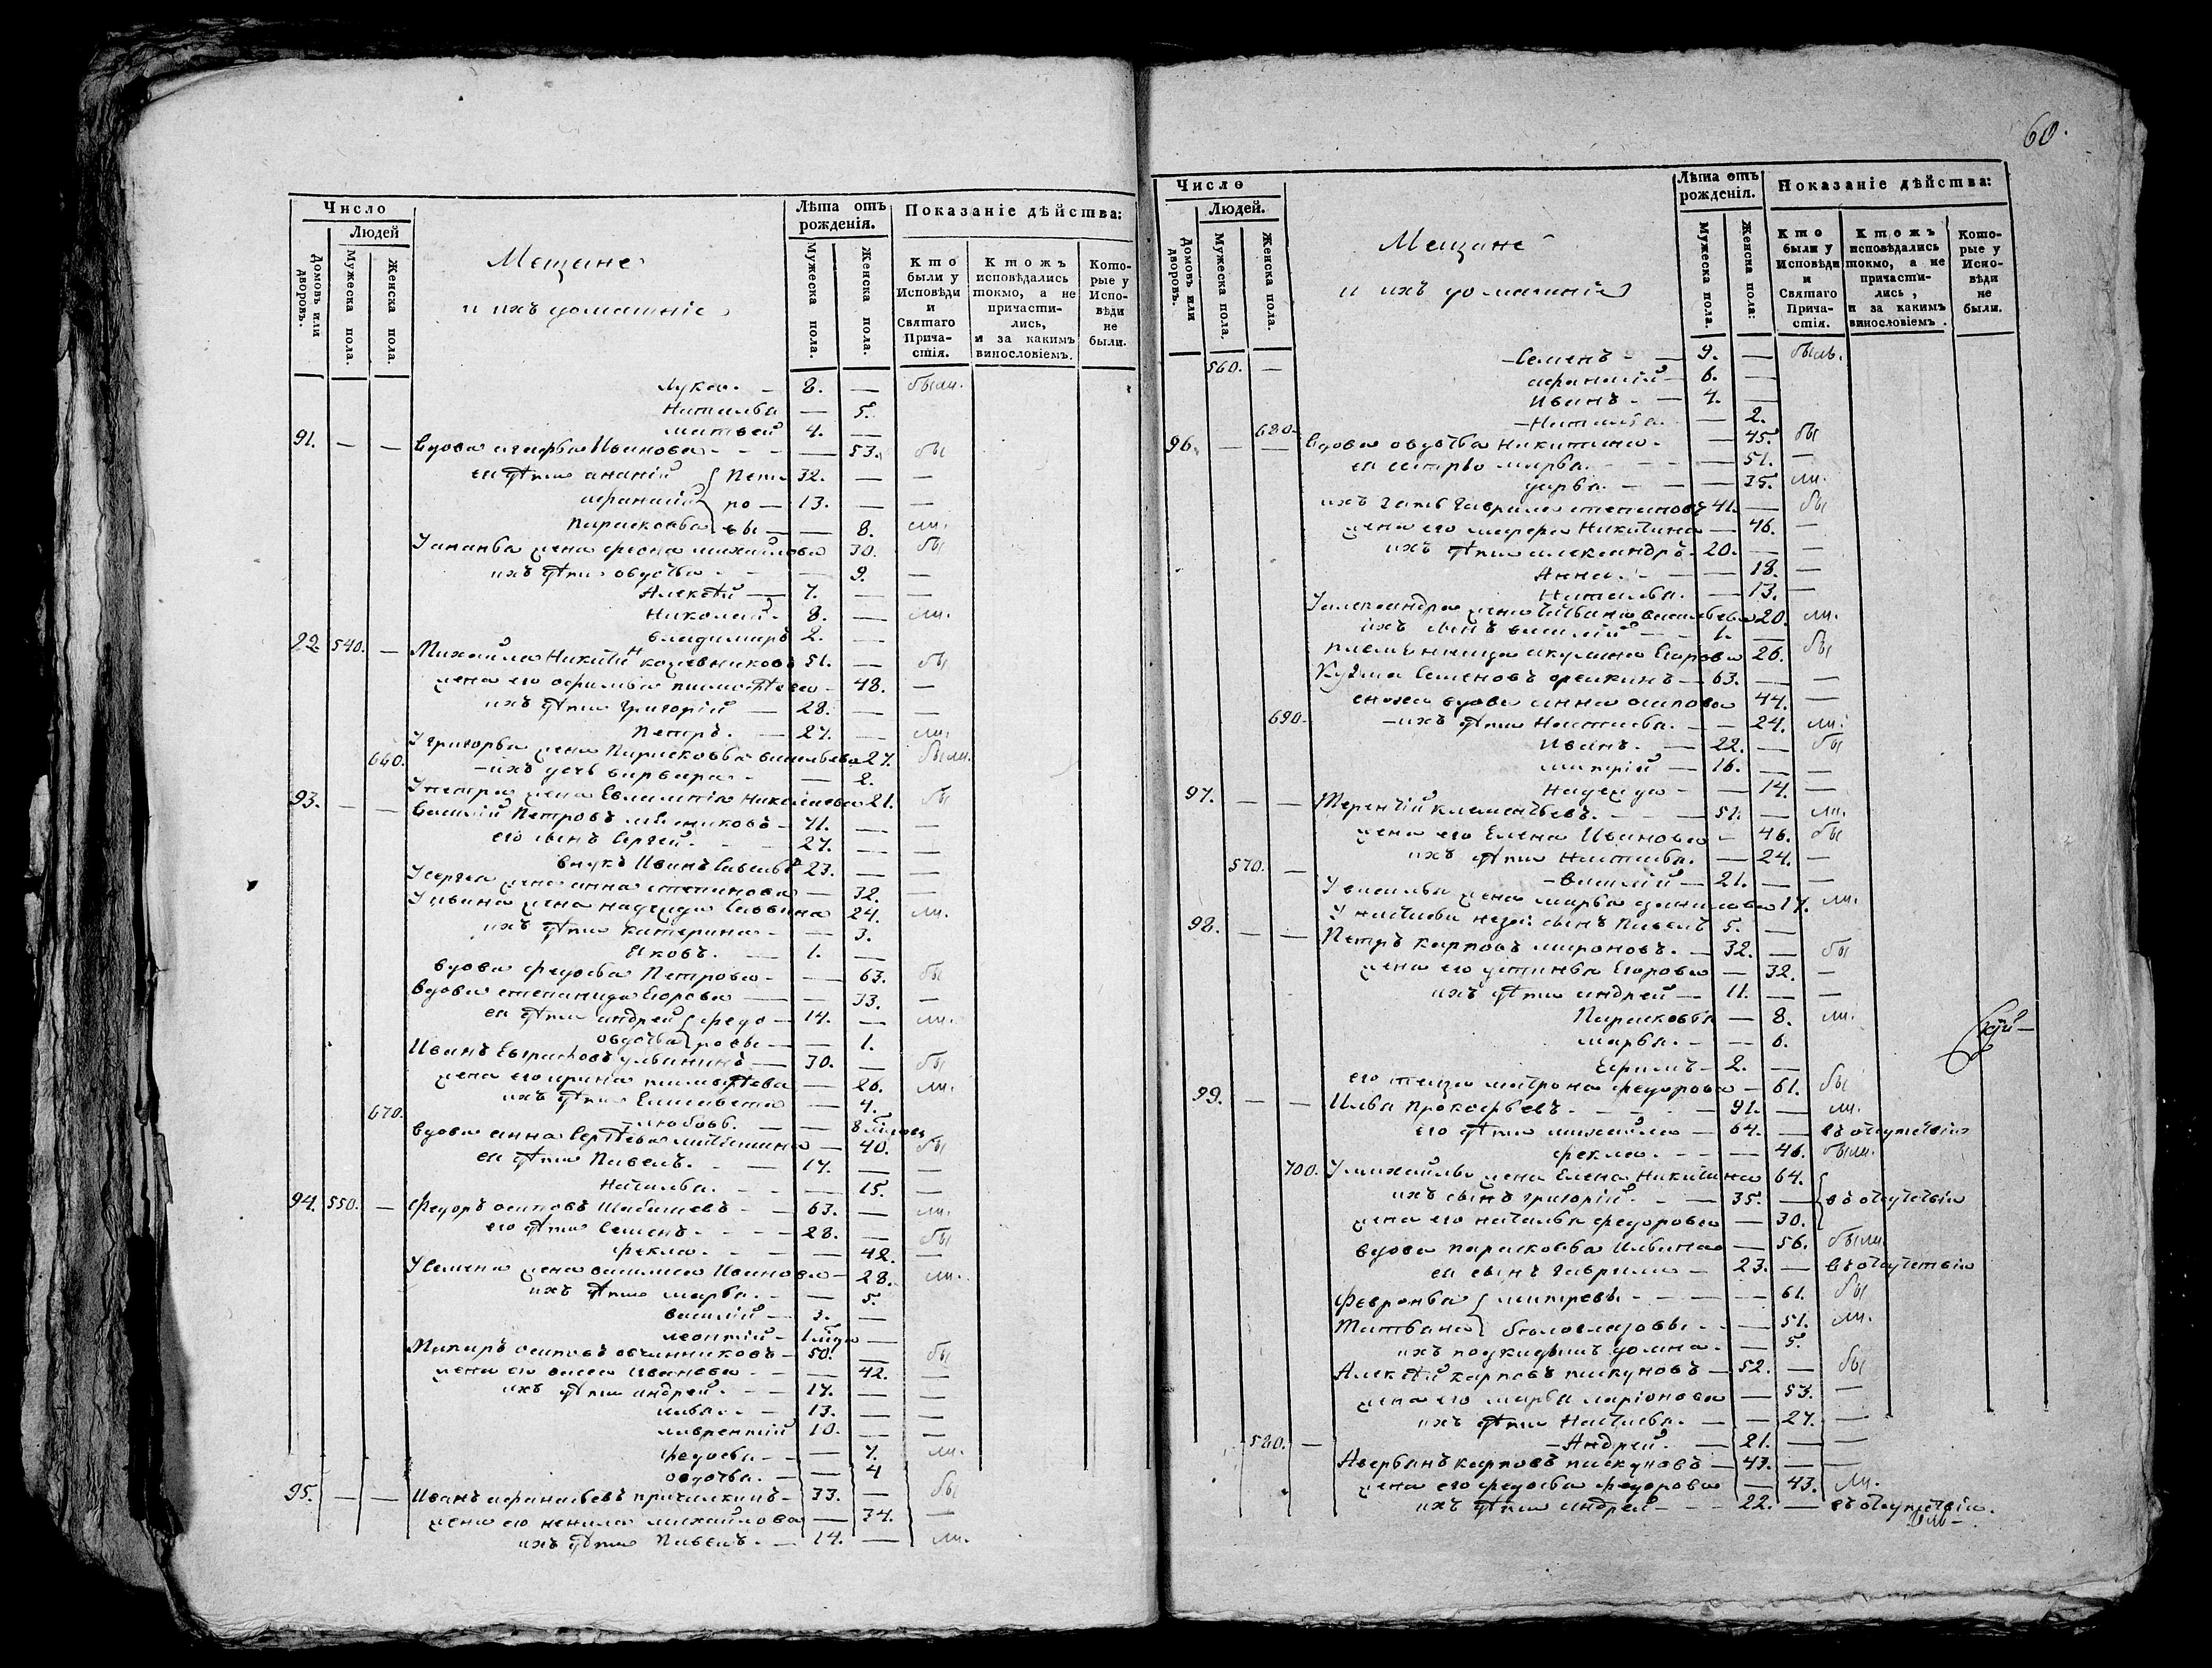 60.
Число
Людей
Домовъ или дворовъ.
Мужеска пола.
Женска пола.
Мещане
и ихъ домашніе
Лѣта отъ рожденія.
Мужеска пола.
Женска пола.
Показаніе дѣйства:
Кто были у Исповѣди и Святаго Причастія.
Ктожъ исповѣдались токмо, а не причастились, и за какимъ винословіемъ.
Которые у Исповѣди не были.
Лука. — 8. — были.
Наталья — 5.
матвей 4. —
91. — — вдова агафья Иванова — — 53. бы
ея дѣти ананій { Пет 32. — —
афанасій { ро — 13. — —
Парасковья { вы — — 8. ли.
У ананья жена феона михайлова 30. бы
ихъ дѣти овдотья — — 9. —
Алексѣй — 7. — —
Николай. 8. — ли.
владимиръ 2. —
22. 540. — Михайла Никитин кожевниковъ 51. — бы
жена его офимья тимофѣева — 48. —
ихъ дѣти григорій — 28. — —
Петръ. — 27. — ли.
У григорья жена Парасковья васильева 27. были.
660. — ихъ дочь варвара — — 2.
У петра жена Евлампія Николаева 21. бы
93. — — василій Петровъ — 71. — —
его сынъ Сергей. — 27. — —
внукъ Иванъ 23. — —
У сергея жена анна степанова — 32. —
У ивана жена надежда Саввина 24. ли.
ихъ дѣти катерина — — 3.
Яковъ. — 1. —
вдова федосья Петрова — — 63. бы
вдова степанида Егорова — — 33. —
ея дѣти андрей { федо — 14. — ли.
овдотья { ровы — — 1.
Иванъ ульянинъ — 30. — бы
жена его ирина тимофѣева — 26. ли.
ихъ дѣти Елисавета — 4.
670. — любовь. — — 8
вдова анна Сергѣева — 40. бы
ея дѣти Павелъ. — 17. — —
Наталья. — — 15. —
94. 550. — федоръ осиповъ Шабашевъ — 63. — ли.
его дѣти Семенъ — 28. — бы
фекла. — — 42. —
У Семена жена василиса Иванова — 28. ли.
ихъ дѣти марья. — — 5.
василій — 3. —
леонтій — 1 —
осиповъ овчинниковъ — 50. — бы
жена его Иванова — — 42. —
ихъ дѣти андрей. — 17. — —
илья. — 13. — —
лаврентій 10. — —
федосья — — 7. ли.
овдотья. — — 4
95. — — Иванъ афанасьевъ — 33. — бы
жена его ненила михайлова — 34. —
ихъ дѣти Павелъ. — 14. — ли.
Число
Людей.
Домовъ или дворовъ.
Мужеска пола.
Женска пола.
Мещане
и ихъ домашніе
Лѣта отъ рожденія.
Мужеска пола.
Женска пола:
Показаніе дѣйства:
Кто были у Исповѣди и Святаго Причастія.
Ктожъ исповѣдались токмо, а не причастились, и за какимъ винословіемъ.
Которые у Исповѣди не были.
560. — — Семенъ — 9. — былъ.
афанасій — 6. —
Иванъ — 4. —
680. — Наталья. — 2.
96. — — вдова овдотья Никитина — — 45. бы
ея сестры марья. — — 51. —
дарья. — — 35. ли.
ихъ зять гаврила степановъ 41. — бы
жена его марфа Никитина — 46. —
ихъ дѣти александръ — 20. — —
Анна. — — 18. —
Наталья. — 13. —
У александра жена татьяна васильева 20. ли.
ихъ сынъ василій — 1. —
племянница акулина Егорова 26. бы
Кузма Семеновъ — 63. — —
сноха вдова анна осипова 44. —
690. — ихъ дѣти Наталья. — 24. ли.
Иванъ. — 22. — бы
митрій — 16. — —
Надежда — — 14. —
97. — — Терентій клементьевъ. — 51. — ли.
жена его Елена Иванова — 46. бы
ихъ дѣти Наталья. — 24. —
570. — — василій — 21. — —
У василья жена марья данилова 17. ли.
У натальи сынъ Павелъ 5. —
98. — — Петръ карповъ мироновъ. — 32. — бы
жена его устинья Егорова — 32. —
ихъ дѣти андрей — 11. — —
Парасковья — 8. ли.
марья. — — 6.
Ефимъ — 2. —
его теща матрона федорова — 61. бы
99. — — Илья Прокофьевъ. — 91. — ли.
его дѣти михайла — 64. — въ отсутствіи
фекла. — — 46. были.
700. У михайлы жена Елена Никитина 64.
ихъ сынъ григорій. — 35. — въ отсутствіи
жена его наталья федорова — 30.
вдова парасковья Ильина — 56. были.
ея сынъ гаврила — 23. — въ отсутствіи
Февронья { митревы. — — 61. бы
Татьяна { бѣлоглазовы. — — 51. ли.
ихъ подкидышъ домна. — 5.
Алексѣй карповъ пискуновъ — 52. — бы
жена его марья ларіонова — 53. —
ихъ дѣти Наталья. — — 27. —
580. — — Андрей. — 21. — —
Аверьянъ карповъ пискуновъ — 43. — —
жена его федосья федорова — 43. ли.
ихъ дѣти андрей — — 22. — въ отсутствіи.